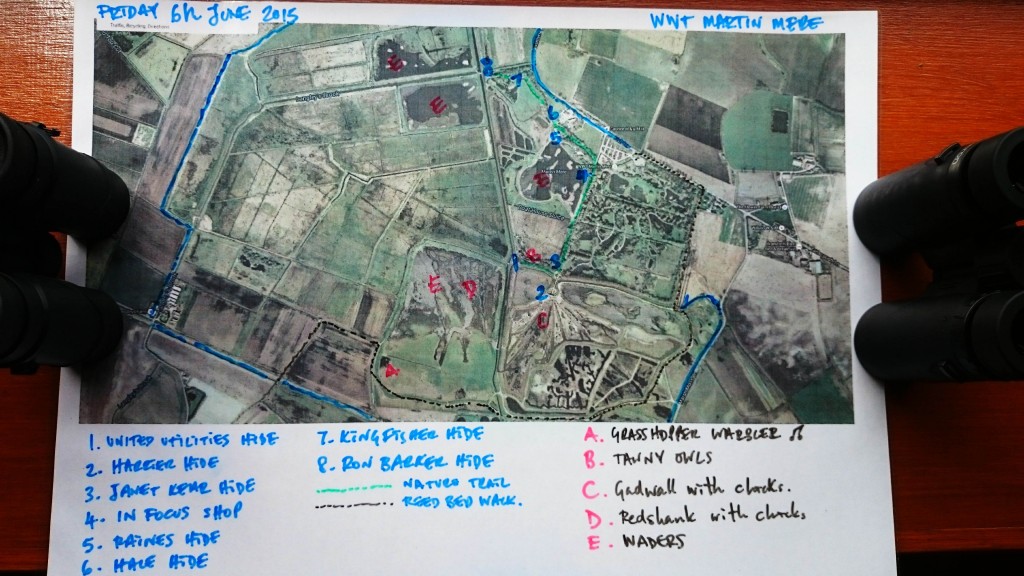 FRIDAY 6th JUNE 2015
WWT MARTIN MERE
1. UNITED UTILITIES HIDE
2. HARRIER HIDE
3. JANET KEAR HIDE
4. IN FOCUS SHOP
5. RAINES HIDE
6. HALE HIDE
7. KINGFISHER HIDE
8. RON BARKER HIDE
NATURE TRAIL
REED BED WALK.
A. GRASSHOPPER WARBLER
B. TAWNY OWLS
C. Gadwall with chicks.
D. Redshank with chicks
E. WADERS
E
E
8
7
6
5
E
B
1
3
E
D
2
C
A